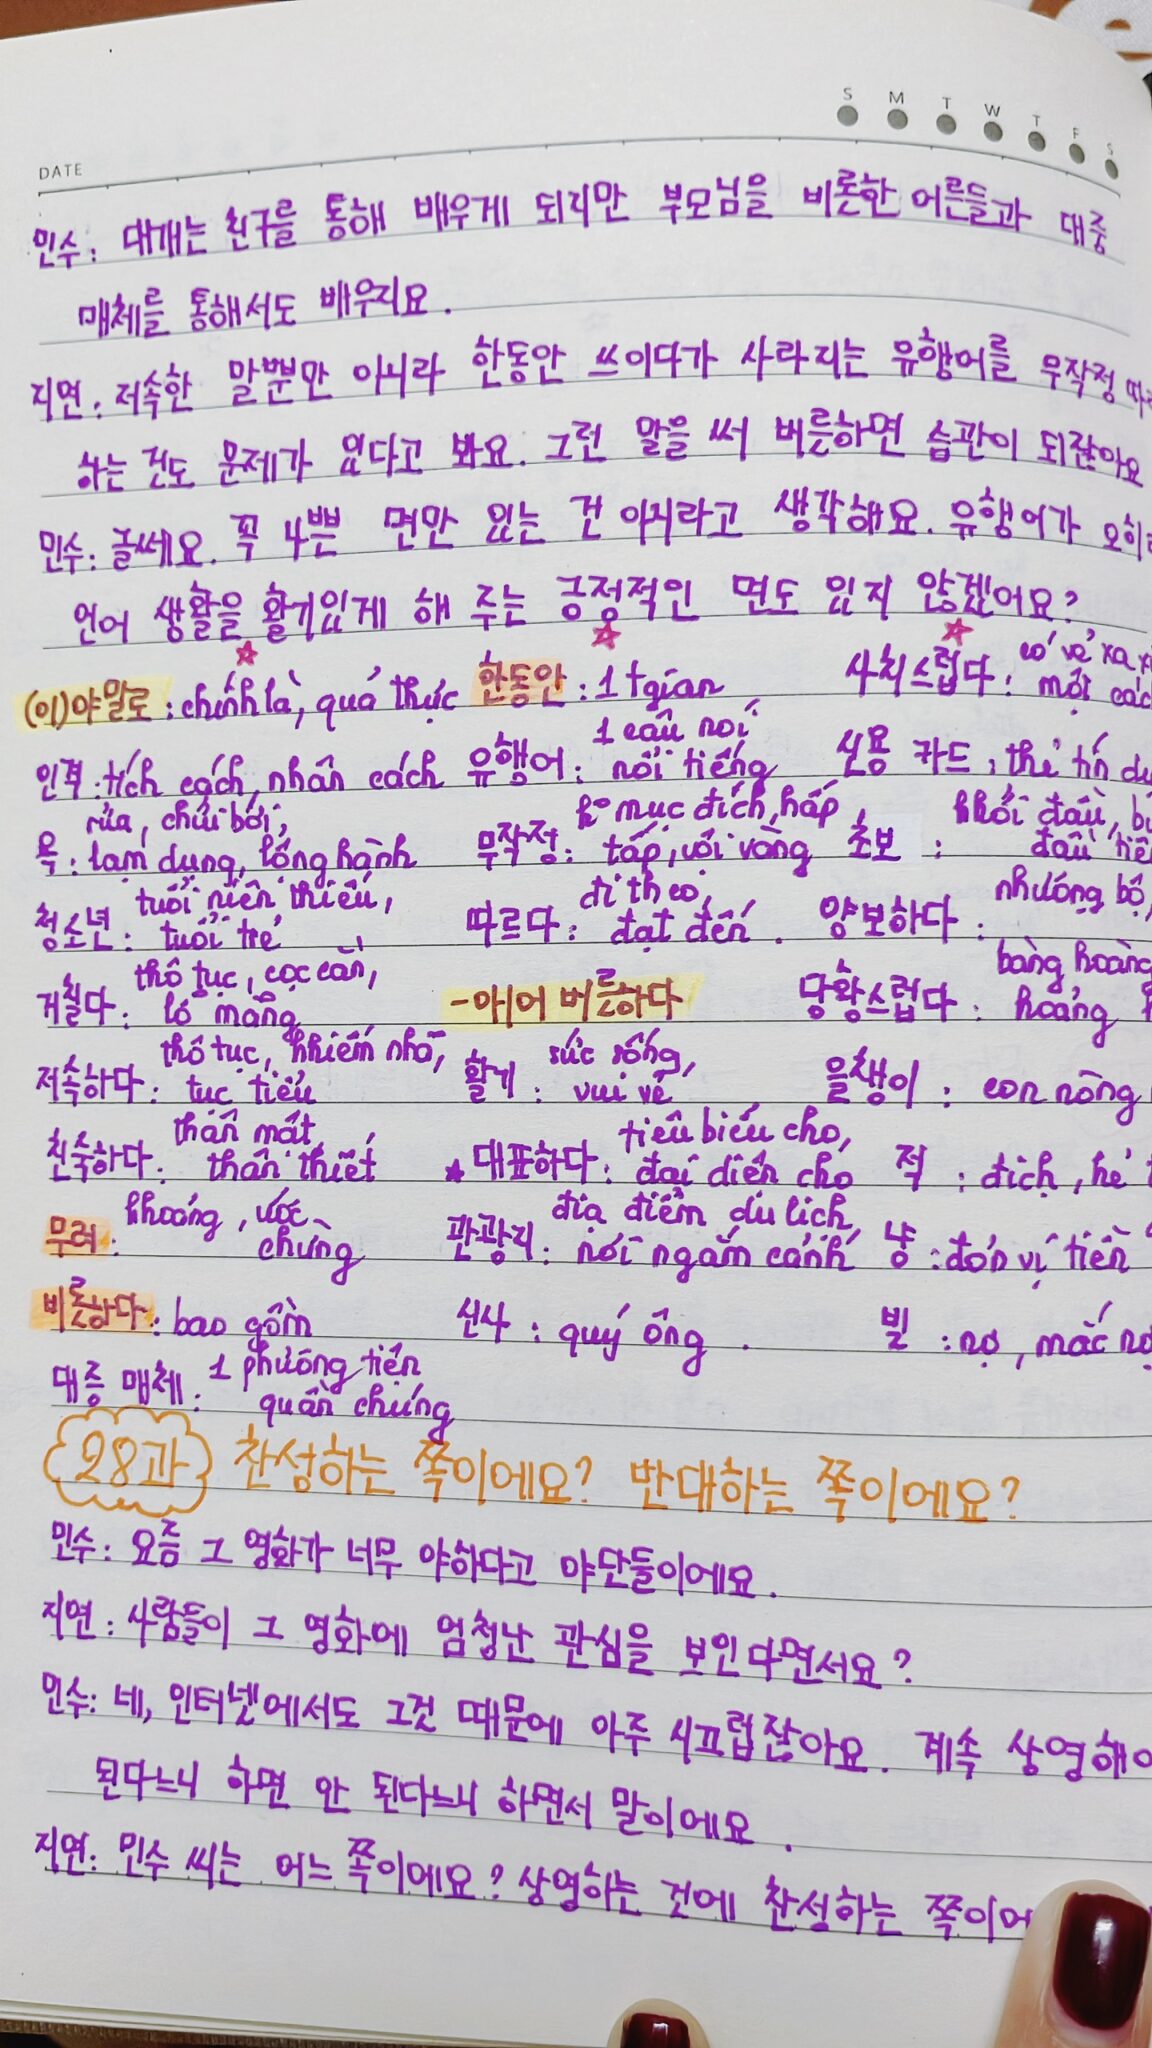 S M T W T F S
DATE
민수: 대개는 친구를 통해 배우게 되지만 부모님을 비롯한 어른들과 대중
매체를 통해서도 배우지요.
지연: 저속한 말뿐만 아니라 한동안 쓰이다가 사라지는 유행어를 무작정
하는 건도 문제가 있다고 봐요. 그런 말을 써 버릇하면 습관이 되잖아요
민수: 글쎄요. 꼭 나쁜 면만 있는 건 아니라고 생각해요. 유행어가
언어 생활을 활기있게 해 주는 긍정적인 면도 있지 않겠어요?
(이)야말로 : chính là, quả thực 한동안 : 1 tgian 사치스럽다 : có vẻ xa một
인격 : tích cách, nhân cách 유행어 : 1 câu nói nổi tiếng 신용 카드 : thẻ tín
욕 : rủa, chửi bới, lạm dụng, lộng hành 무작정 : ko mục đích, hấp tấp, vội vàng 초보 : khởi đầu, đầu
청소년 : tuổi niên thiếu, tuổi trẻ 따르다 : đi theo, đạt đến . 양보하다 : nhượng bộ,
거칠다 : thô tục, cọc cằn, lỗ mãng -아/어 버릇하다 당황스럽다 : bàng hoàng hoảng
저속하다 : thô tục, nhiễm nhỏ, tục tiểu 활기 : sức sống, vui vẻ 을챙이 : con nòng
친숙하다 : thân mật, thân thiết 대표하다 : tiêu biểu cho, đại diện cho 적 : địch, kẻ
무려 : khoảng, ước chừng 관광지 : địa điểm du lịch, nơi ngắm cảnh 냥 : đơn vị tiền
비롯하다 : bao gồm 신사 : quý ông . 빚 : nợ, mắc nợ
대중 매체 : 1 phương tiện quần chúng
28과 찬성하는 쪽이에요? 반대하는 쪽이에요?
민수: 요즘 그 영화가 너무 야하다고 야단들이에요.
지연: 사람들이 그 영화에 엄청난 관심을 보인다면서요?
민수: 네, 인터넷에서도 그것 때문에 아주 시끄럽잖아요. 계속 상영해야
된다느니 하면 안 된다느니 하면서 말이에요.
지연: 민수 씨는 어느 쪽이에요? 상영하는 것에 찬성하는 쪽이에